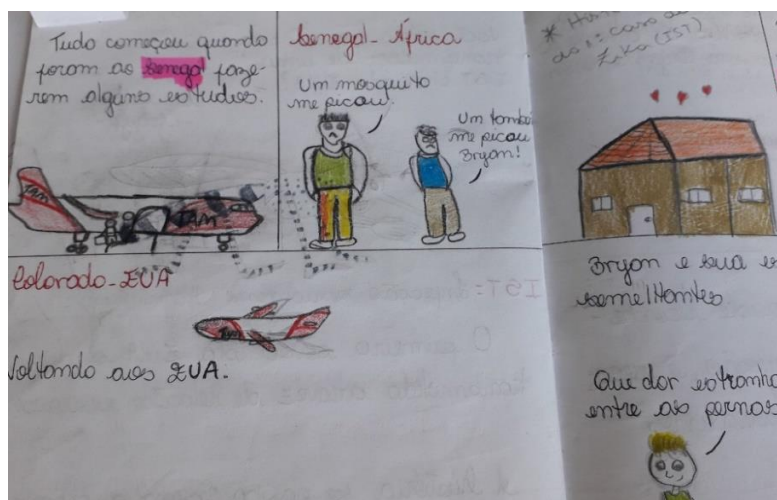 Tudo começou quando
foram ao Senegal faze-
rem alguns estudos.
Senegal - África
Um mosquito
me picou!
Um també
me picou
Bryan!
TAM
TAM
Colorado - EUA
TAM
Voltando aos EUA.
do 1º caso de
Zika (IST)
Bryan e sua es
semelhantes
Que dor estranha
entre as pernas
IST:
O primeiro